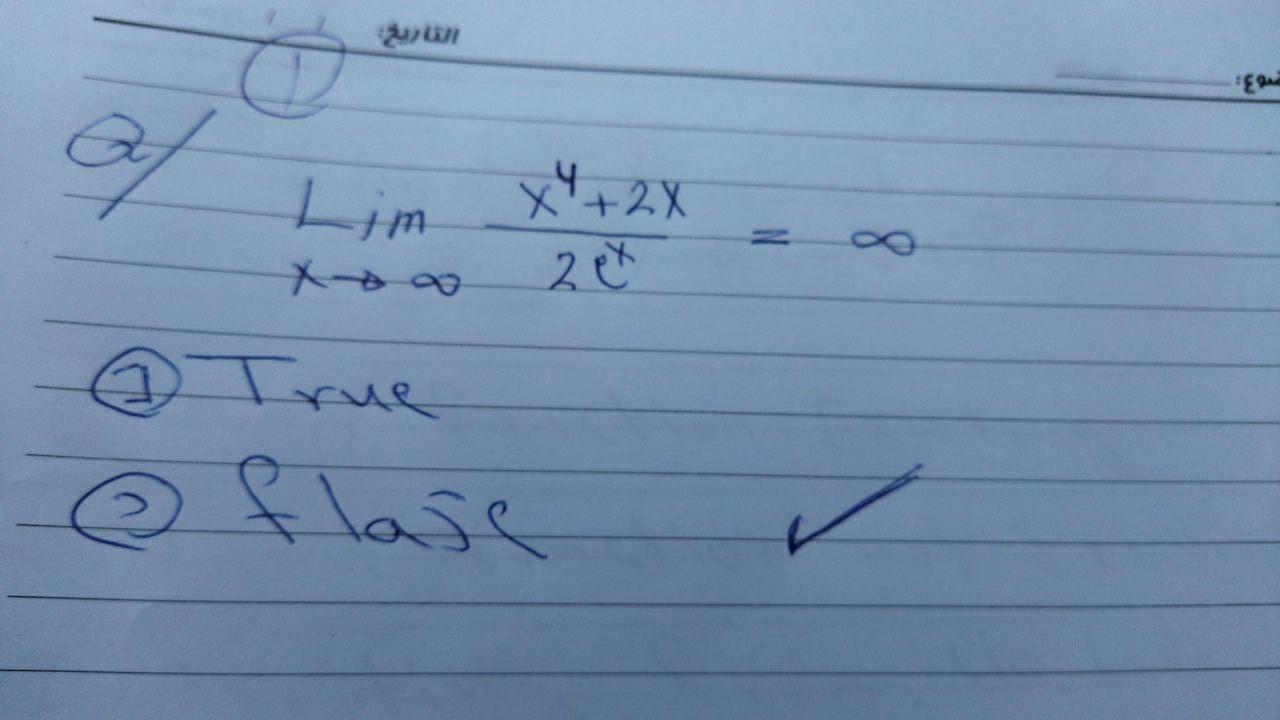 التاريخ:
①
Q/
Lim x→∞ (x⁴+2x)/(2eˣ) = ∞
① True
② flase ✓